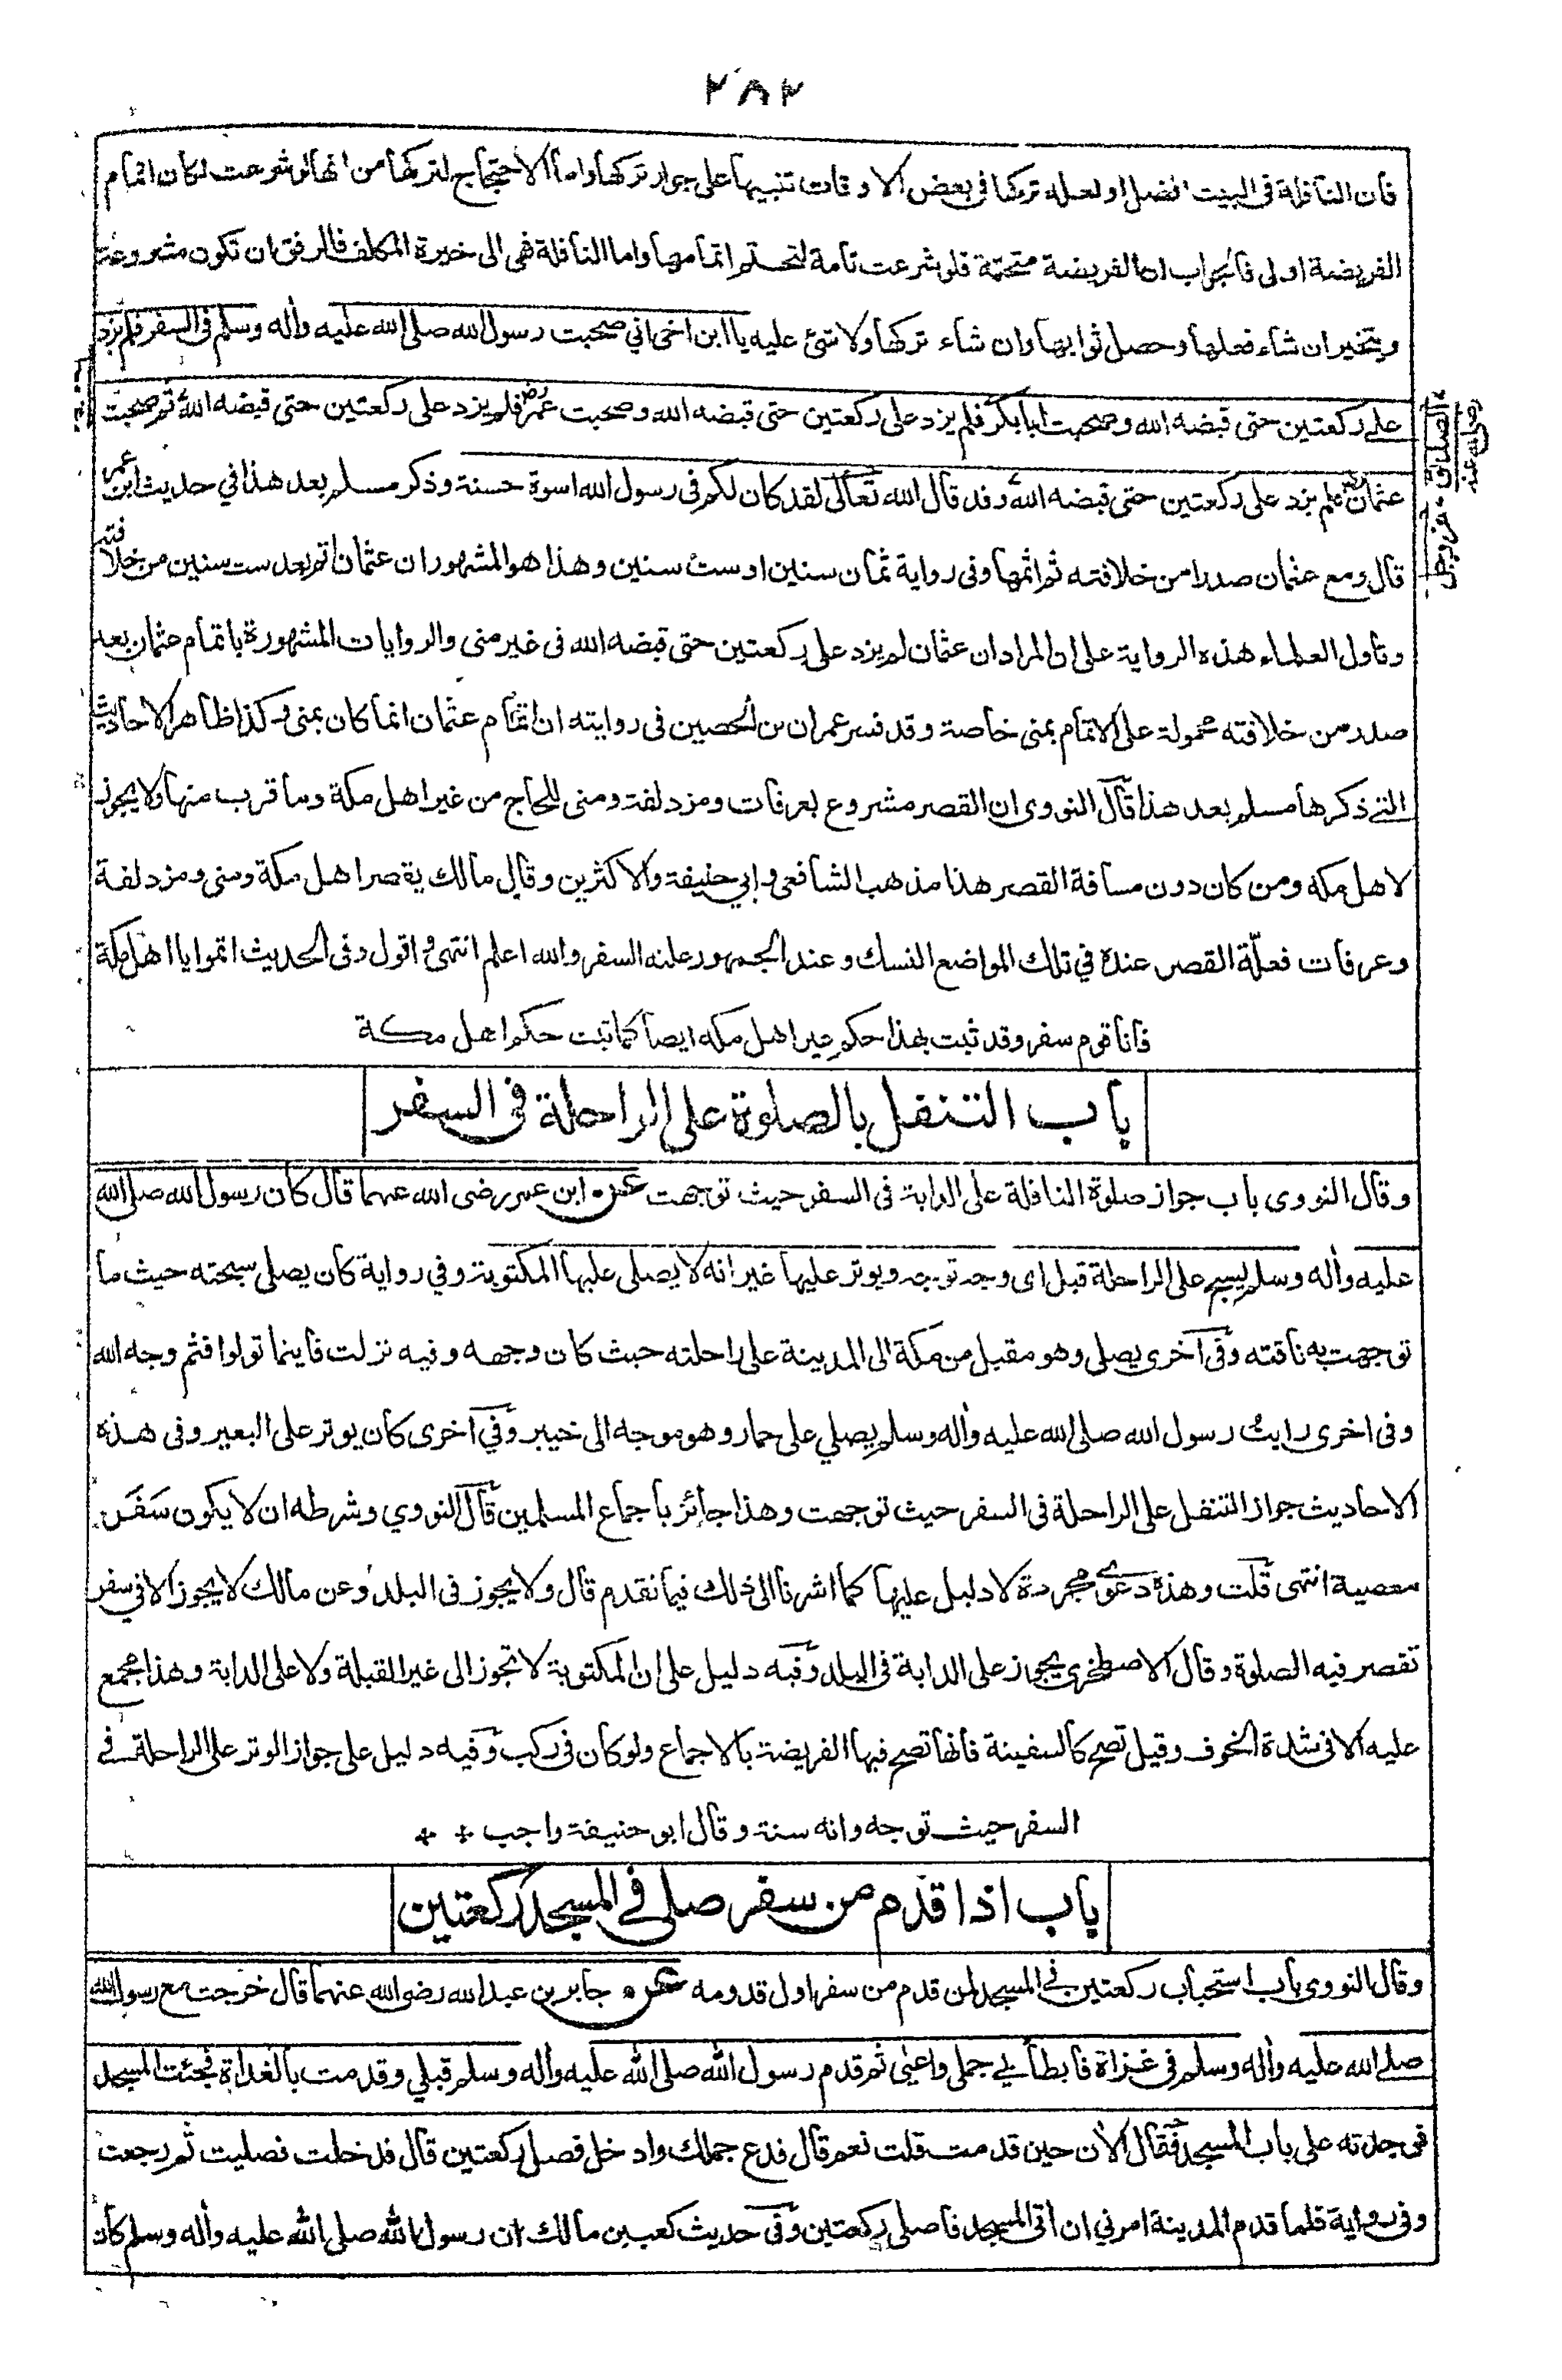 ٢٨٢
فان النافلة فى البيت افضل او لعله تركها فى بعض الاوقات تنبيها على جواز تركها واما الاحتجاج لتركها من انها لو شرعت لكان اتمام
الفريضة اولى فالجواب ان الفريضة متحتمة فلو شرعت تامة لتحتم اتمامها واما النافلة فهى الى خيرة المكلف فالرفق ان تكون مشروعة
ويتخير ان شاء فعلها وحصل ثوابها وان شاء تركها ولا شئ عليه يا ابن اخى اني صحبت رسول الله صلى الله عليه واله وسلم فى السفر فلم يزد
على ركعتين حتى قبضه الله وصحبت ابا بكر فلم يزد على ركعتين حتى قبضه الله وصحبت عمر رض فلم يزد على ركعتين حتى قبضه الله ثم صحبت
عثمان فلم يزد على ركعتين حتى قبضه الله وقد قال الله تعالى لقد كان لكم فى رسول الله اسوة حسنة وذكر مسلم بعد هذا في حديث ابن عمر
قال ومع عثمان صدرا من خلافته ثم اتمها وفى رواية ثمان سنين او ست سنين وهذا هو المشهور ان عثمان اتم بعد ست سنين من خلافته
وتاول العلماء هذه الرواية على ان المراد ان عثمان لم يزد على ركعتين حتى قبضه الله فى غير منى والروايات المشهورة باتمام عثمان بعد
صدر من خلافته محمولة على الاتمام بمنى خاصة وقد فسر عمران بن الحصين فى روايته ان اتمام عثمان انما كان بمنى وكذا ظاهر الاحاديث
التے ذكرها مسلم بعد هذا قال النووى ان القصر مشروع بعرفات ومزدلفة ومنى للحاج من غير اهل مكة وما قرب منها ولا يجوز
لاهل مكه ومن كان دون مسافة القصر هذا مذهب الشافعى وابي حنيفة والاكثرين وقال مالك يقصر اهل مكة ومنى ومزدلفة
وعرفات فعلّة القصر عنده في تلك المواضع النسك وعند الجمهور علته السفر والله اعلم انتهى واقول وفى الحديث اتموا يا اهل مكة
فانا قوم سفر وقد ثبت بهذا حكم غير اهل مكه ايضا كما ثبت حكم اهل مكة
باب التنفل بالصلوة على الراحلة فى السفر
وقال النووى باب جواز صلوة النافلة على الدابة فى السفر حيث توجهت عن ابن عمر رضى الله عنهما قال كان رسول الله صلى الله
عليه واله وسلم يسبح على الراحلة قبل اى وجه توجه ويوتر عليها غير انه لا يصلى عليها المكتوبة وفي رواية كان يصلى سبحته حيث ما
توجهت به ناقته وفى اخرى يصلى وهو مقبل من مكة الى المدينة على راحلته حيث كان وجهه وفيه نزلت فاينما تولوا فثم وجه الله
وفى اخرى رايت رسول الله صلى الله عليه واله وسلم يصلي على حمار وهو موجه الى خيبر وفي اخرى كان يوتر على البعير وفى هذه
الاحاديث جواز التنفل على الراحلة فى السفر حيث توجهت وهذا جائز باجماع المسلمين قال النووي وشرطه ان لا يكون سَفَر
معصية انتهى قلت وهذه دعوى مجردة لا دليل عليها كما اشرنا الى ذلك فيما تقدم قال ولا يجوز فى البلد وعن مالك لا يجوز الا في سفر
تقصر فيه الصلوة وقال الاصطخرى يجوز على الدابة فى البلد وفيه دليل على ان المكتوبة لا تجوز الى غير القبلة ولا على الدابة وهذا مجمع
عليه الا فى شدة الخوف وقيل تصح كالسفينة فانها تصح فيها الفريضة بالاجماع ولو كان فى ركب وفيه دليل على جواز الوتر على الراحلة فے
السفر حيث توجه وانه سنة وقال ابو حنيفة واجب
باب اذا قدم من سفر صلى فے المسجد ركعتين
وقال النووى باب استحباب ركعتين فے المسجد لمن قدم من سفر اول قدومه عن جابر بن عبد الله رضى الله عنهما قال خرجت مع رسول الله
صلى الله عليه واله وسلم فى غزاة فابطأ بي جملي واعيى ثم قدم رسول الله صلى الله عليه واله وسلم قبلي وقدمت بالغداة فجئت المسجد
فوجدته على باب المسجد فقال الان حين قدمت قلت نعم قال فدع جملك وادخل فصل ركعتين قال فدخلت فصليت ثم رجعت
وفى رواية فلما قدم المدينة امرني ان اتى المسجد فاصلى ركعتين وفى حديث كعب بن مالك ان رسول الله صلى الله عليه واله وسلم كان